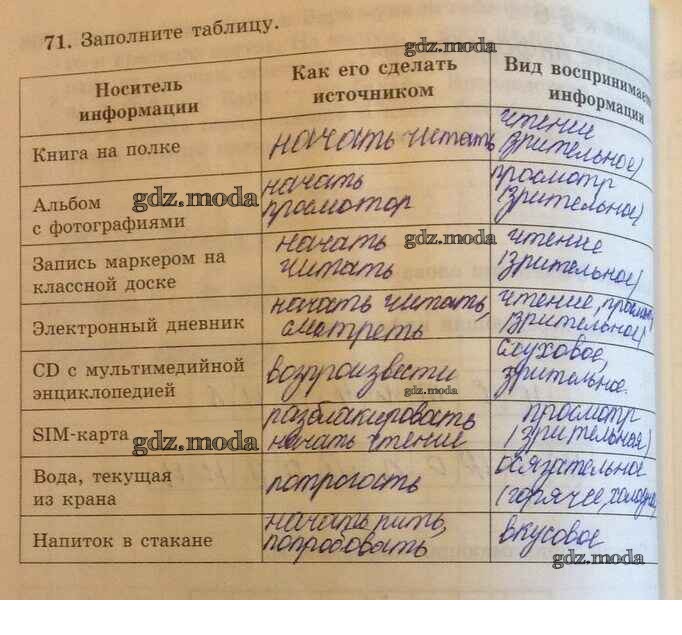 71. Заполните таблицу.
gdz.moda
Носитель
информации
Как его сделать
источником
Вид воспринимае
информации
Книга на полке
начать читать
чтение
(зрительное)
Альбом
с фотографиями
gdz.moda
начать
просмотор
просмотр
(зрительное)
Запись маркером на
классной доске
начать
читать
gdz.moda
чтение
(зрительное)
Электронный дневник
начать читать,
смотреть
чтение, просмо
(зрительное)
CD с мультимедийной
энциклопедией
возпроизвести
gdz.moda
слуховое,
зрительное.
SIM-карта
gdz.moda
разблакировать
начать чтение
просмотр
(зрительная)
Вода, текущая
из крана
потрогость
осязательное
(горячее, холодн
Напиток в стакане
начать пить,
попробовать
вкусовое
gdz.moda